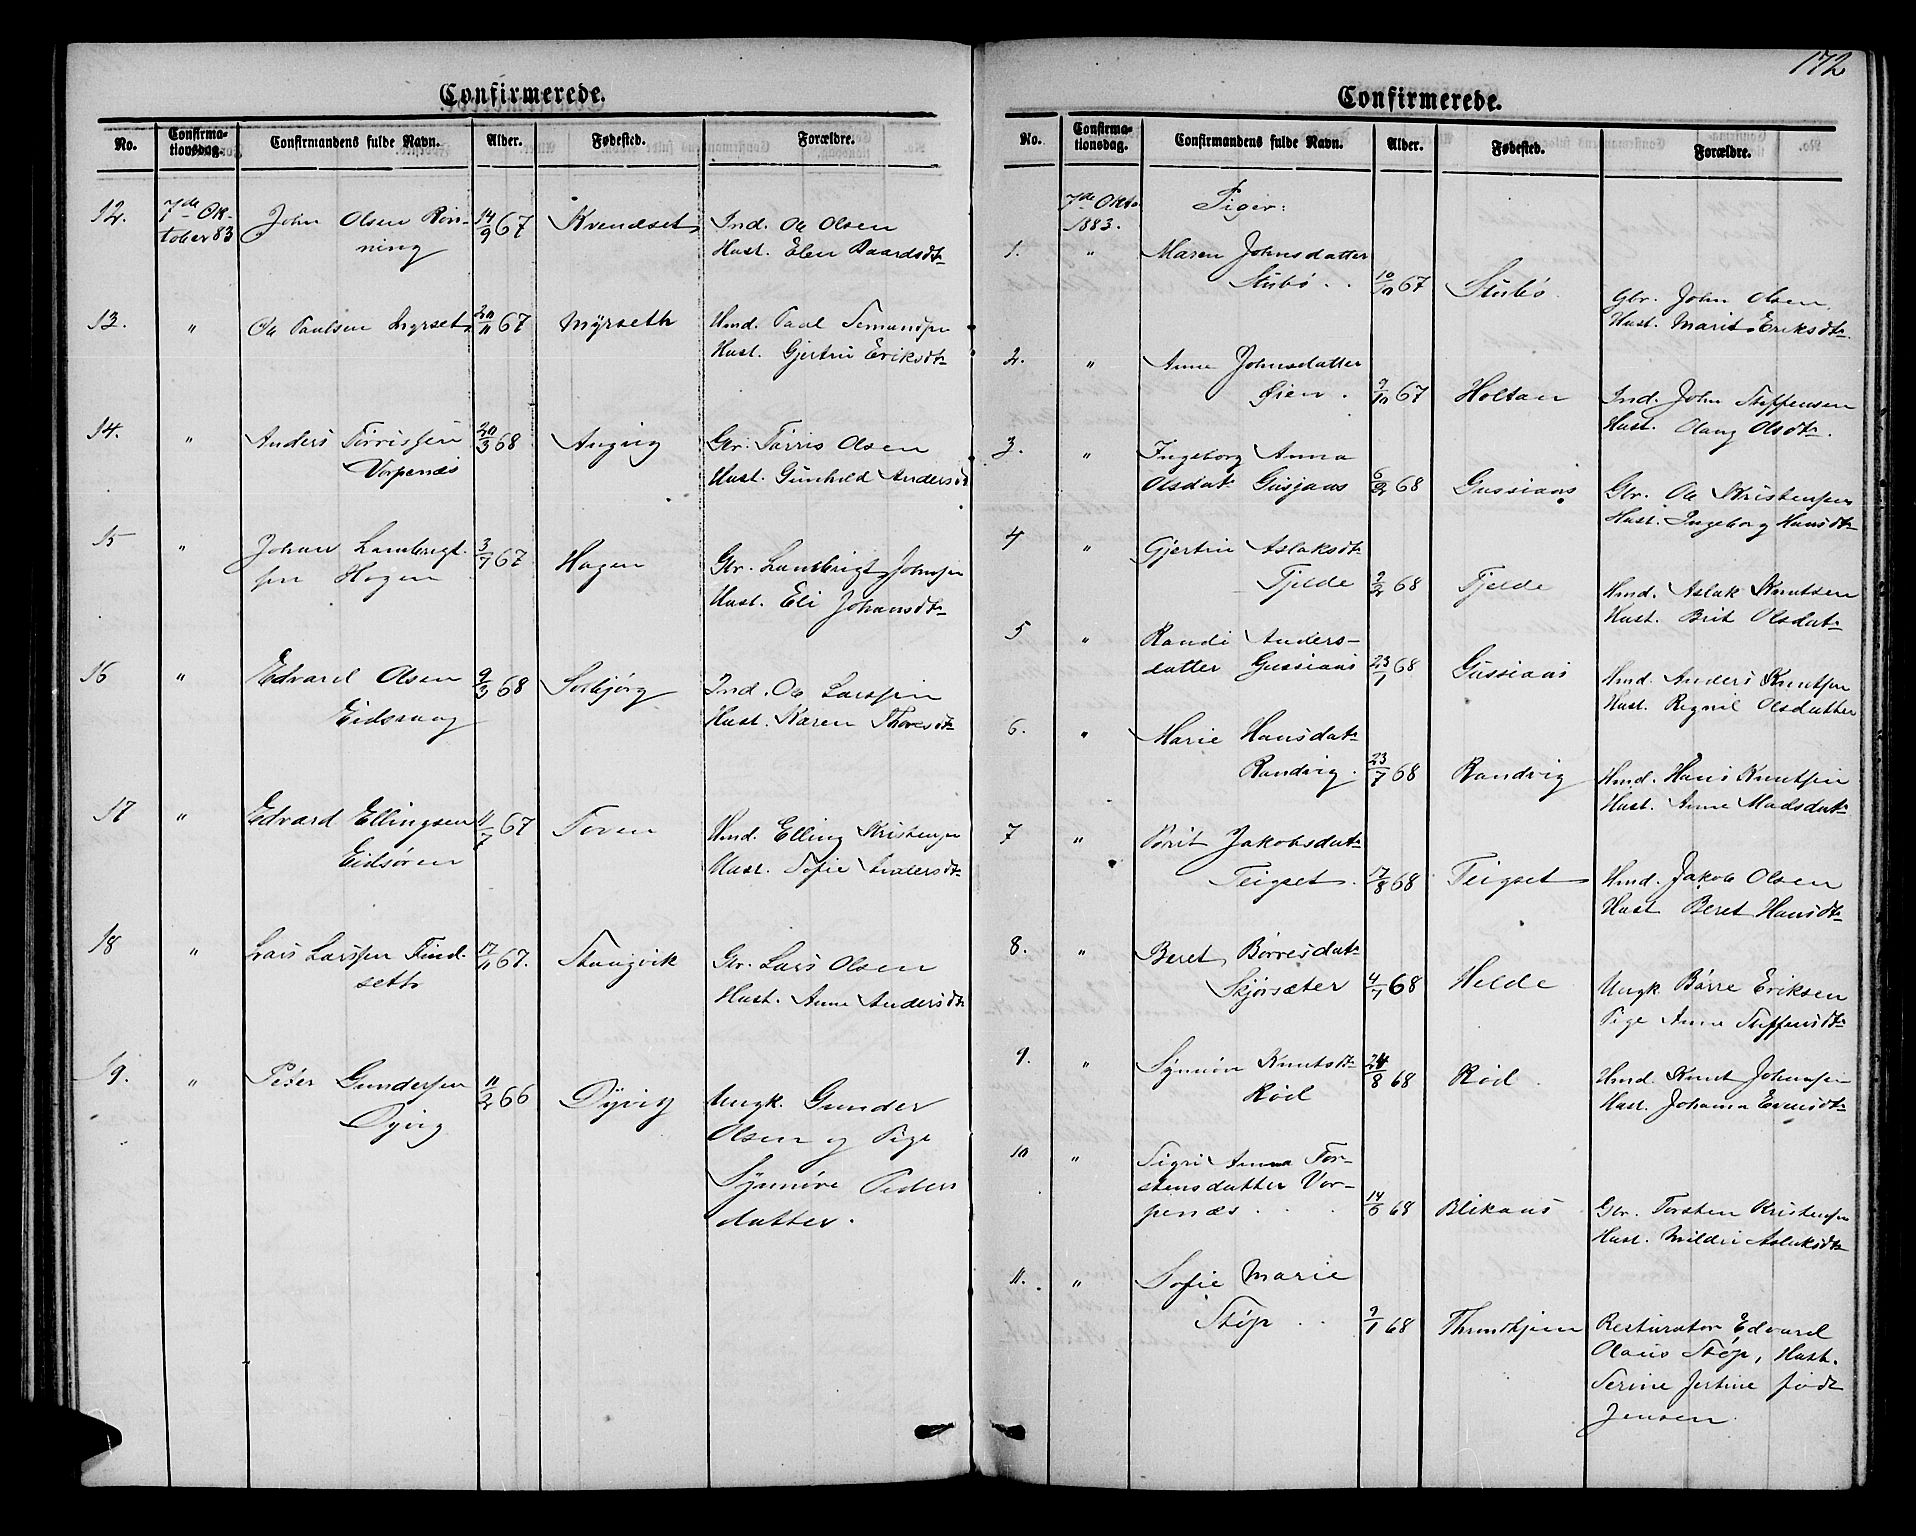 Confirmerede.
No. Confirma-tionsdag. Confirmandens fulde Navn. Alder. Fødested. Forældre.
12. 7de Ok-tober 83 John Olsen Røn-ning 14/9 67 Kvendset Ind. Ole Olsen
Hust. Elen Baardsdtr
13. " Ole Paulsen Myrset 20/11 67 Myrseth Hmd. Paul Semundsen
Hust. Gjertru Eriksdtr
14. " Anders Torrissen Vorpenæs 20/3 68 Angvig Gbr. Torris Olsen
Hust. Gunhild Andersd
15 " Johan Lambrigt-sen Hagen 3/7 67 Hagen Gbr. Lambrigt Johnsen
Hust. Eli Johansdtr
16 " Edvard Olsen Eidsvaag 9/3 68 Solbjørg Ind. Ole Larssen
Hust. Karen Thoresdtr
17 " Edvard Ellingsen Eidsøren 11/7 67 Toven Hmd. Elling Kristensen
Hust. Sofie Andersdtr
18 " Lars Larssen Find-seth 17/11 67. Stangvik Gbr. Lars Olsen
Hust. Anne Andersdtr
19. " Peter Gundersen Dyvig 11/2 66 Dyvig Ungk. Gunder
Olsen og Pige
Synnøve Peders
datter.
172
Confirmerede.
No. Confirma-tionsdag. Confirmandens fulde Navn. Alder. Fødested. Forældre.
7de Oktbr 1883. Piger:
1. " Maren Johnsdatter Stubø 10/10 67 Stubø. Gbr. John Olsen
Hust. Marit Eriksdtr.
2. " Anne Johnsdatter Øien. 9/10 67 Holtan Ind. John Steffensen
Hust. Olaug Olsdtr.
3. " Ingeborg Anna Olsdatr Gusjaas 6/2 68 Gussiaas Gbr. Ole Kristensen
Hust. Ingeborg Hansdtr
4 " Gjertru Aslaksdtr Tjelde 9/2 68 Tjelde Hmd. Aslak Knutsen
Hust. Brit Olsdatr
5 " Randi Anders-datter Gussiaas 23/1 68 Gussiaas Hmd. Anders Knutsen
Hust. Rignil Olsdatter
6. " Marie Hansdatr Randvig. 23/7 68 Randvig Hmd. Hans Knutsen
Hust. Anne Madsdatr
7 " Brit Jakobsdatr Teigset. 17/8 68 Teigset Hmd. Jakob Olsen
Hust Beret Hansdtr
8. " Beret Børresdatr Skjørsæter 4/7 68 Helde Ungk. Børre Eriksen
Pige Anne Steffensdtr
9. " Synnøv Knutsdtr Rød 24/8 68 Rød. Hmd. Knut Johnsen
Hust. Johanna Evensdtr
10 " Sigri Anna Tor-stensdatter Vor-penæs 14/6 68 Blikaas Gbr. Torsten Kristensen
Hust. Mildri Aslaksdtr
11. " Sofie Marie Støp 9/1 68 Throndhjem Resturatør Edvard
Olaus Støp, Hust.
Serine Jertine født
Jensen.